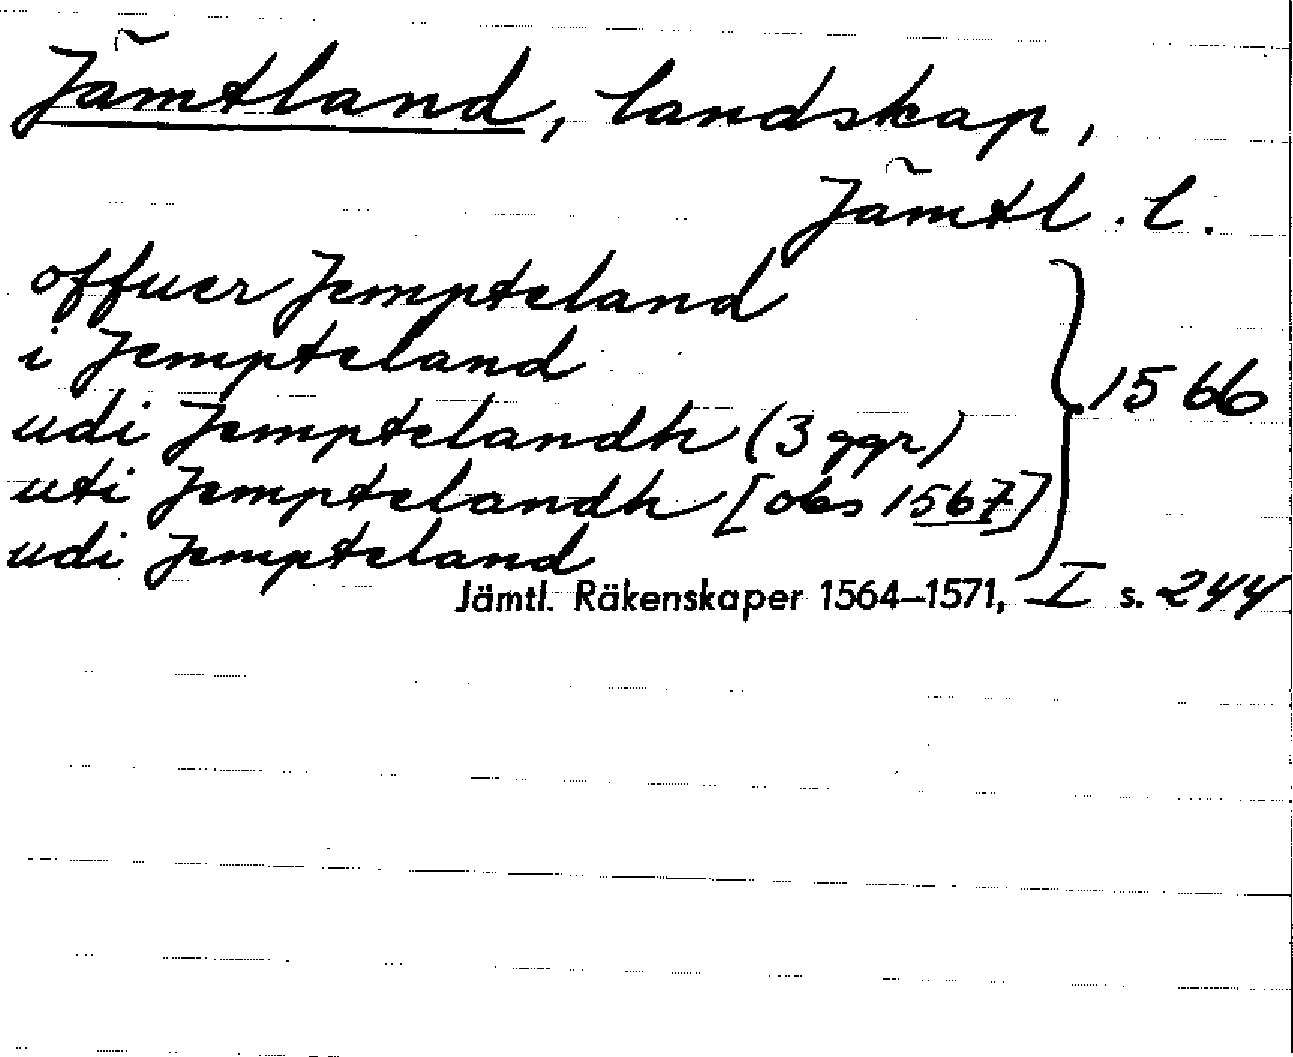 Jämtland, landskap,
Jämtl. l.
offuer Jempteland
i Jempteland
udi Jemptelandh (3 ggr)
uti Jemptelandh [obs 1567]
udi Jempteland
1566
Jämtl. Räkenskaper 1564–1571, I s. 244